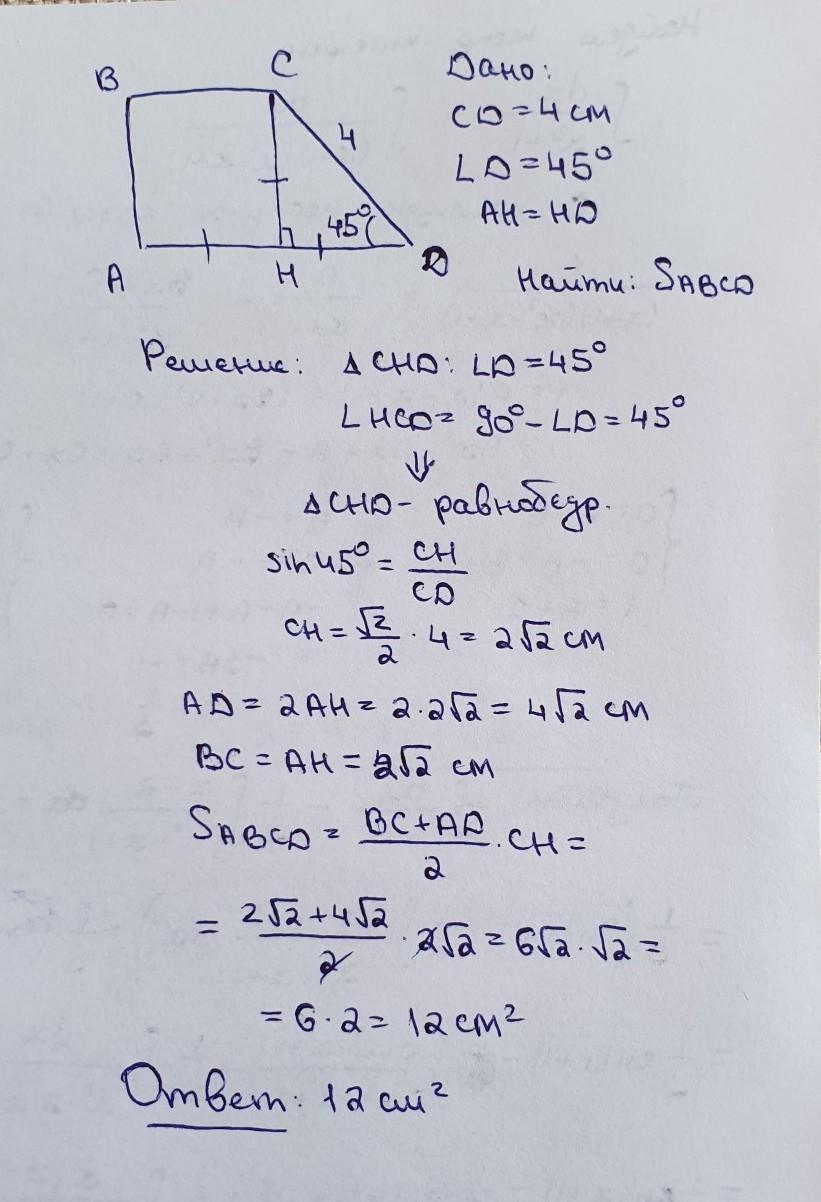 B
C
4
45°
A
H
D
Дано:
CD = 4 см
∠D = 45°
AH = HD
Найти: SABCD
Решение: Δ CHD: ∠D = 45°
∠HCD = 90° - ∠D = 45°
⇓
Δ CHD - равнобедр.
sin45° = CH/CD
CH = √2/2 · 4 = 2√2 см
AD = 2AH = 2·2√2 = 4√2 см
BC = AH = 2√2 см
SABCD = (BC+AD)/2 · CH =
= (2√2+4√2)/2 · 2√2 = 6√2·√2 =
= 6·2 = 12 см²
Ответ: 12 см²